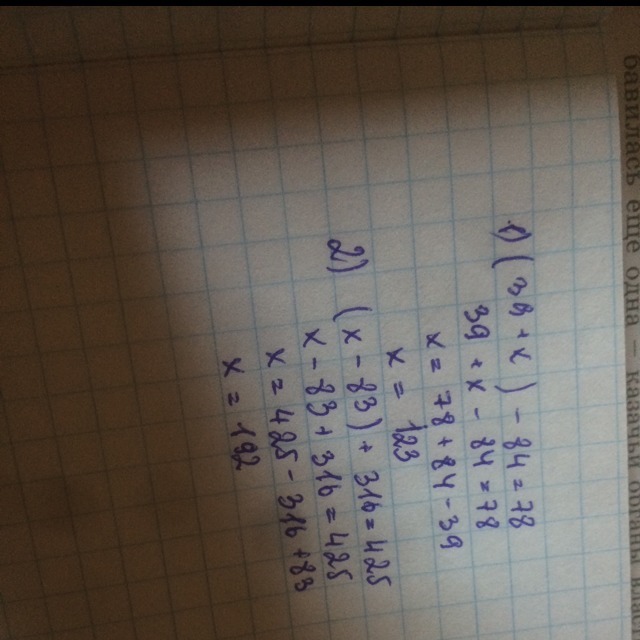 1) (39 + x) - 84 = 78
39 + x - 84 = 78
x = 78 + 84 - 39
x = 123
2) (x - 83) + 316 = 425
x - 83 + 316 = 425
x = 425 - 316 + 83
x = 192
еще